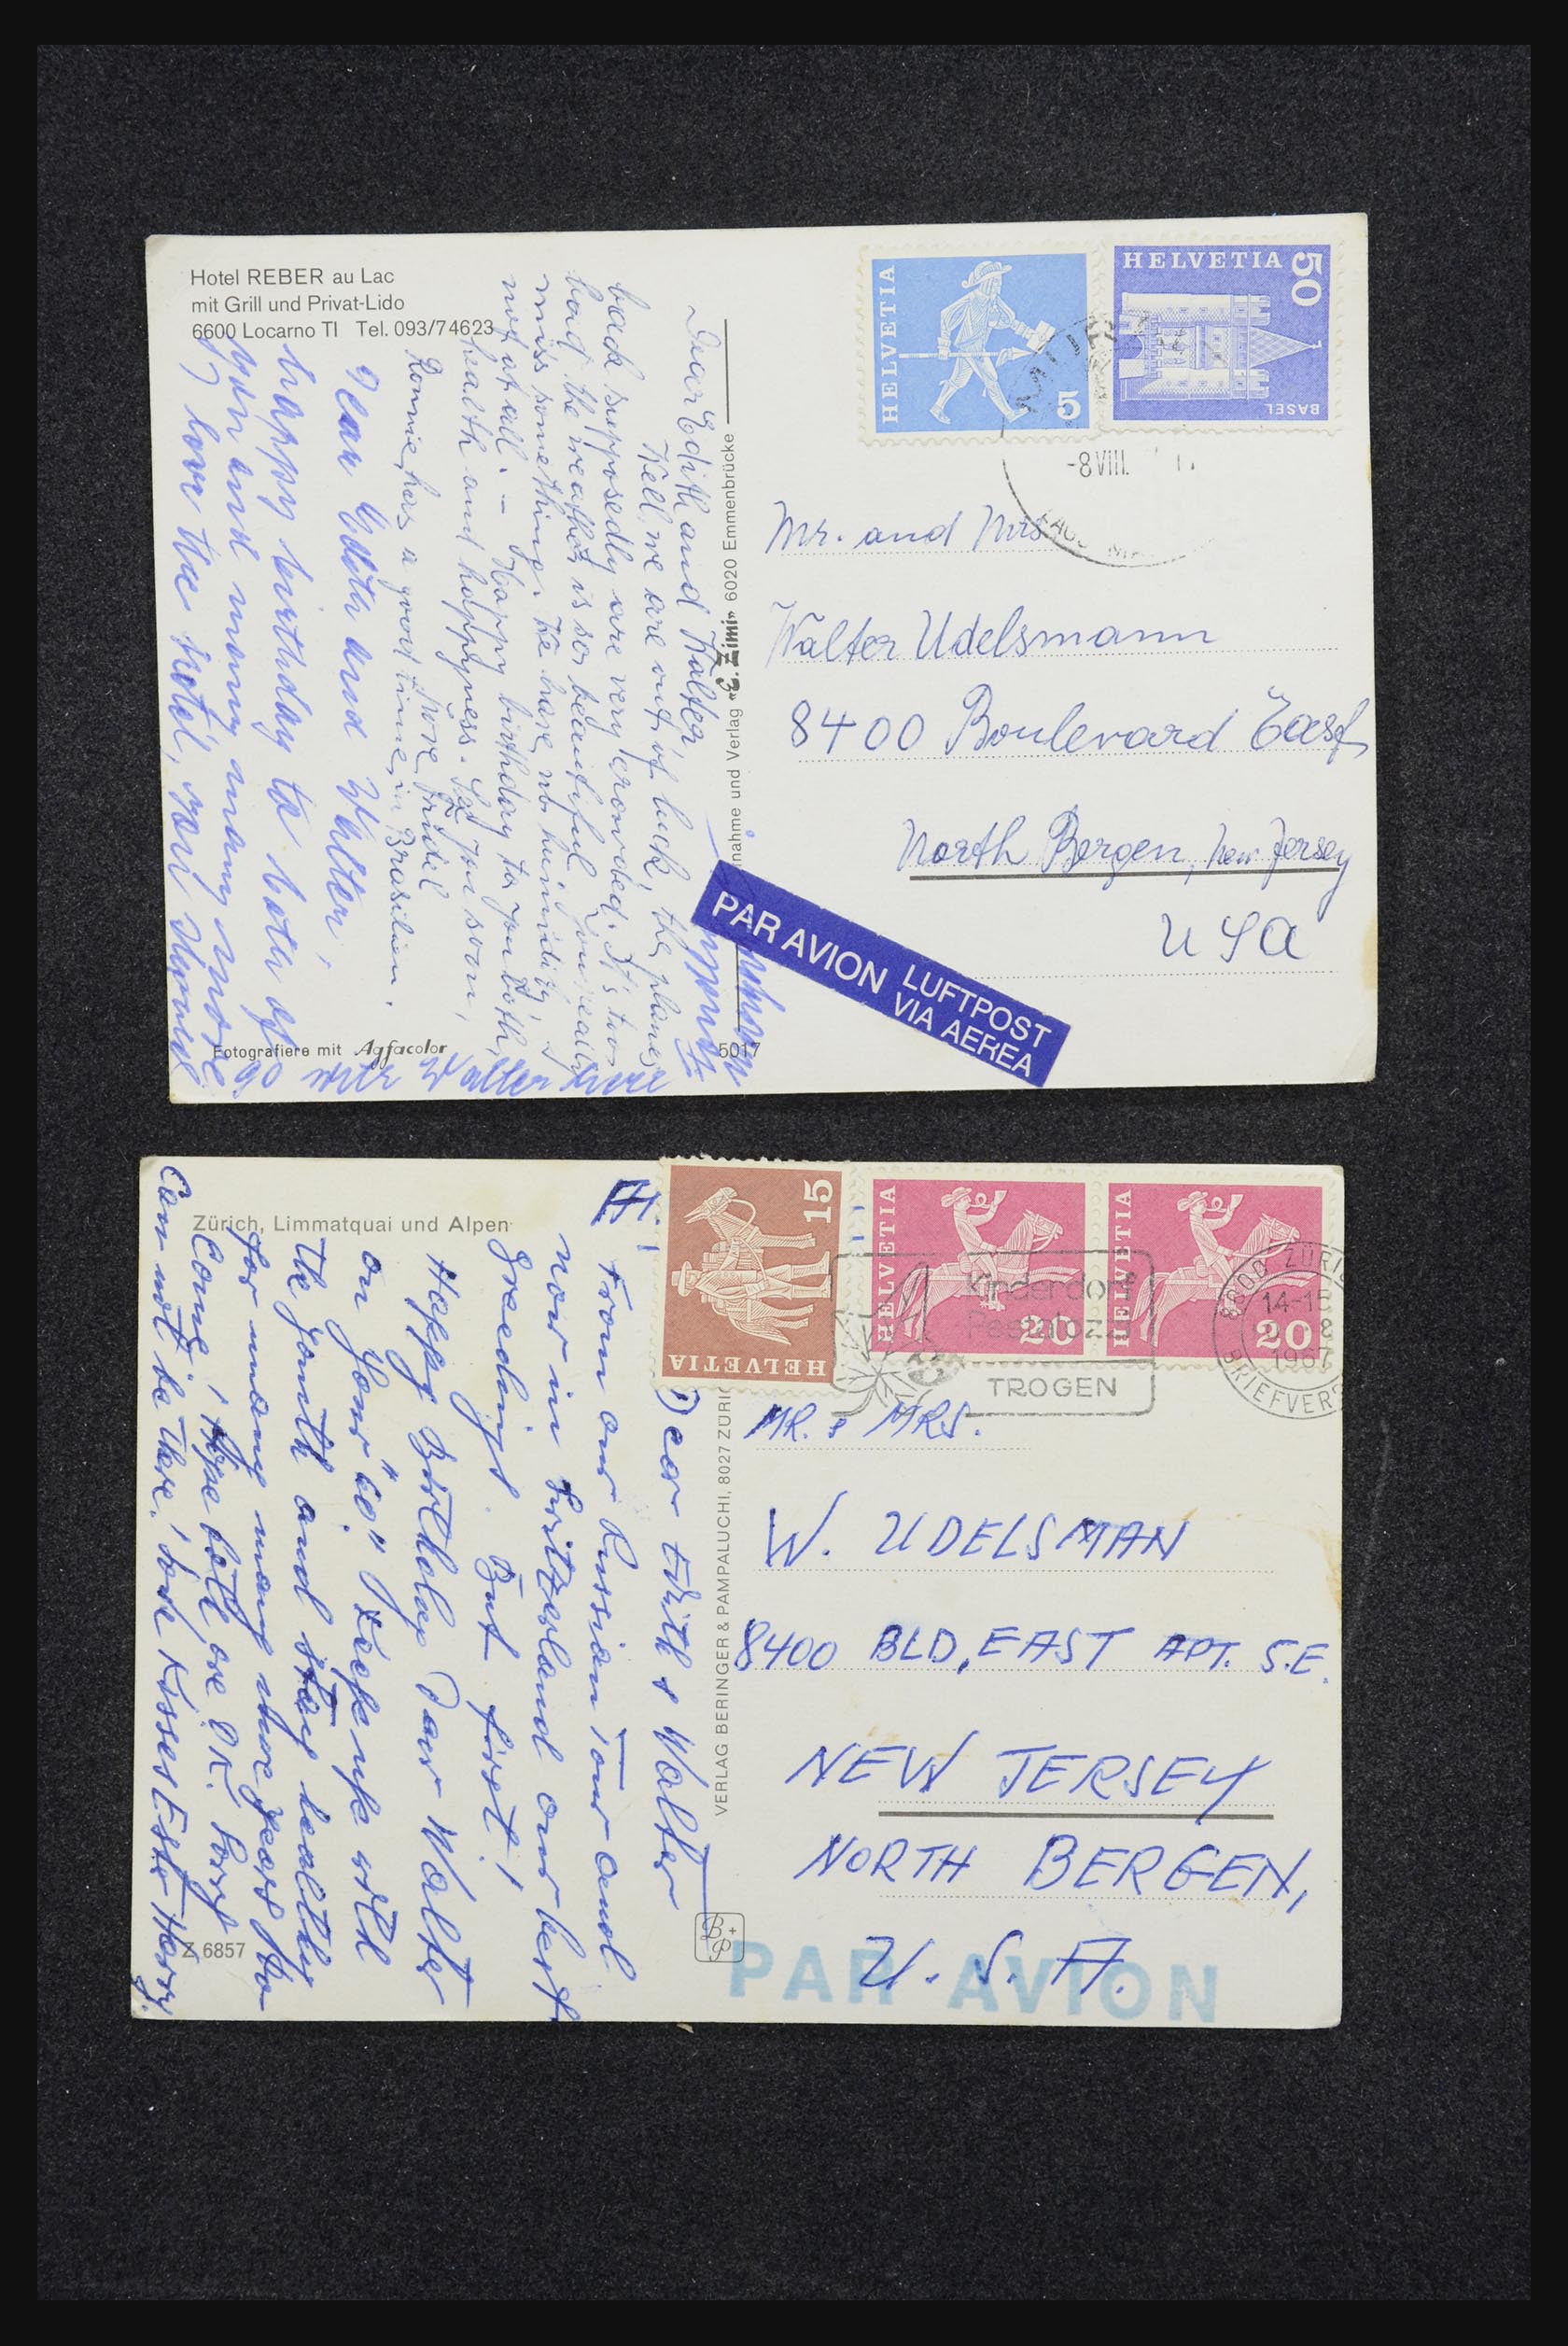 Hotel REBER au Lac
mit Grill und Privat-Lido
6600 Locarno TI Tel. 093/74623
HELVETIA
5
HELVETIA 50
BASEL
-8 VIII.
Dear Edith and Walter,
Well, we are out of luck, the planes
back supposedly are very crowded. It's too
bad the weather is so beautiful, you really
miss something. We have no humidity,
not at all. - Happy birthday to you both,
health and happyness. See you soon,
love, Trudel
Ronnie has a good time in Brasilien.
Dear Edith and Walter,
happy birthday to both of
you and many many more.
I love the hotel, your
Mr. and Mrs.
Walter Udelsmann
8400 Boulevard East
North Bergen, New Jersey
USA
nahme und Verlag «E. Zimi» 6020 Emmenbrücke
PAR AVION LUFTPOST
VIA AEREA
Fotografiere mit Agfacolor
5017
Zürich, Limmatquai und Alpen
15
HELVETIA
HELVETIA
20
HELVETIA
20
Kinderdorf
Pestalozzi
TROGEN
8000 ZÜRICH
14-15
8
1967
BRIEFVERS
Dear Edith & Walter
From our Russian Tour and
now in Switzerland our best
Greedings. But first!
Happy Birthday Dear Walter
on Your "60"
the youth and stay healthy
for many many more years to
Come! Hope both are OK. Sorry
Can not be there! Love Kisses
MR. & MRS.
W. UDELSMAN
8400 BLD, EAST APT. S.E.
NEW JERSEY
NORTH BERGEN,
U. S. A.
PAR AVION
VERLAG BERINGER & PAMPALUCHI, 8027 ZÜRIC
B+P
Z 6857